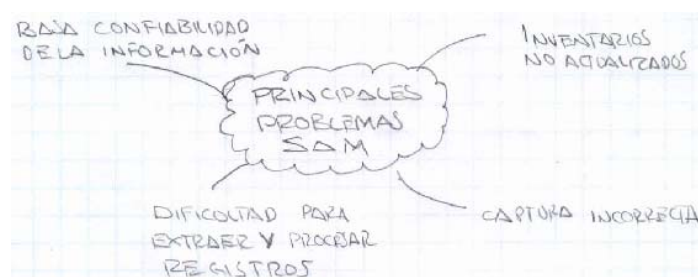 BAJA CONFIABILIDAD
DE LA INFORMACIÓN
INVENTARIOS
NO ACTUALIZADOS
PRINCIPALES
PROBLEMAS
SAM
DIFICULTAD PARA
EXTRAER Y PROCESAR
REGISTROS
CAPTURA INCORRECTA